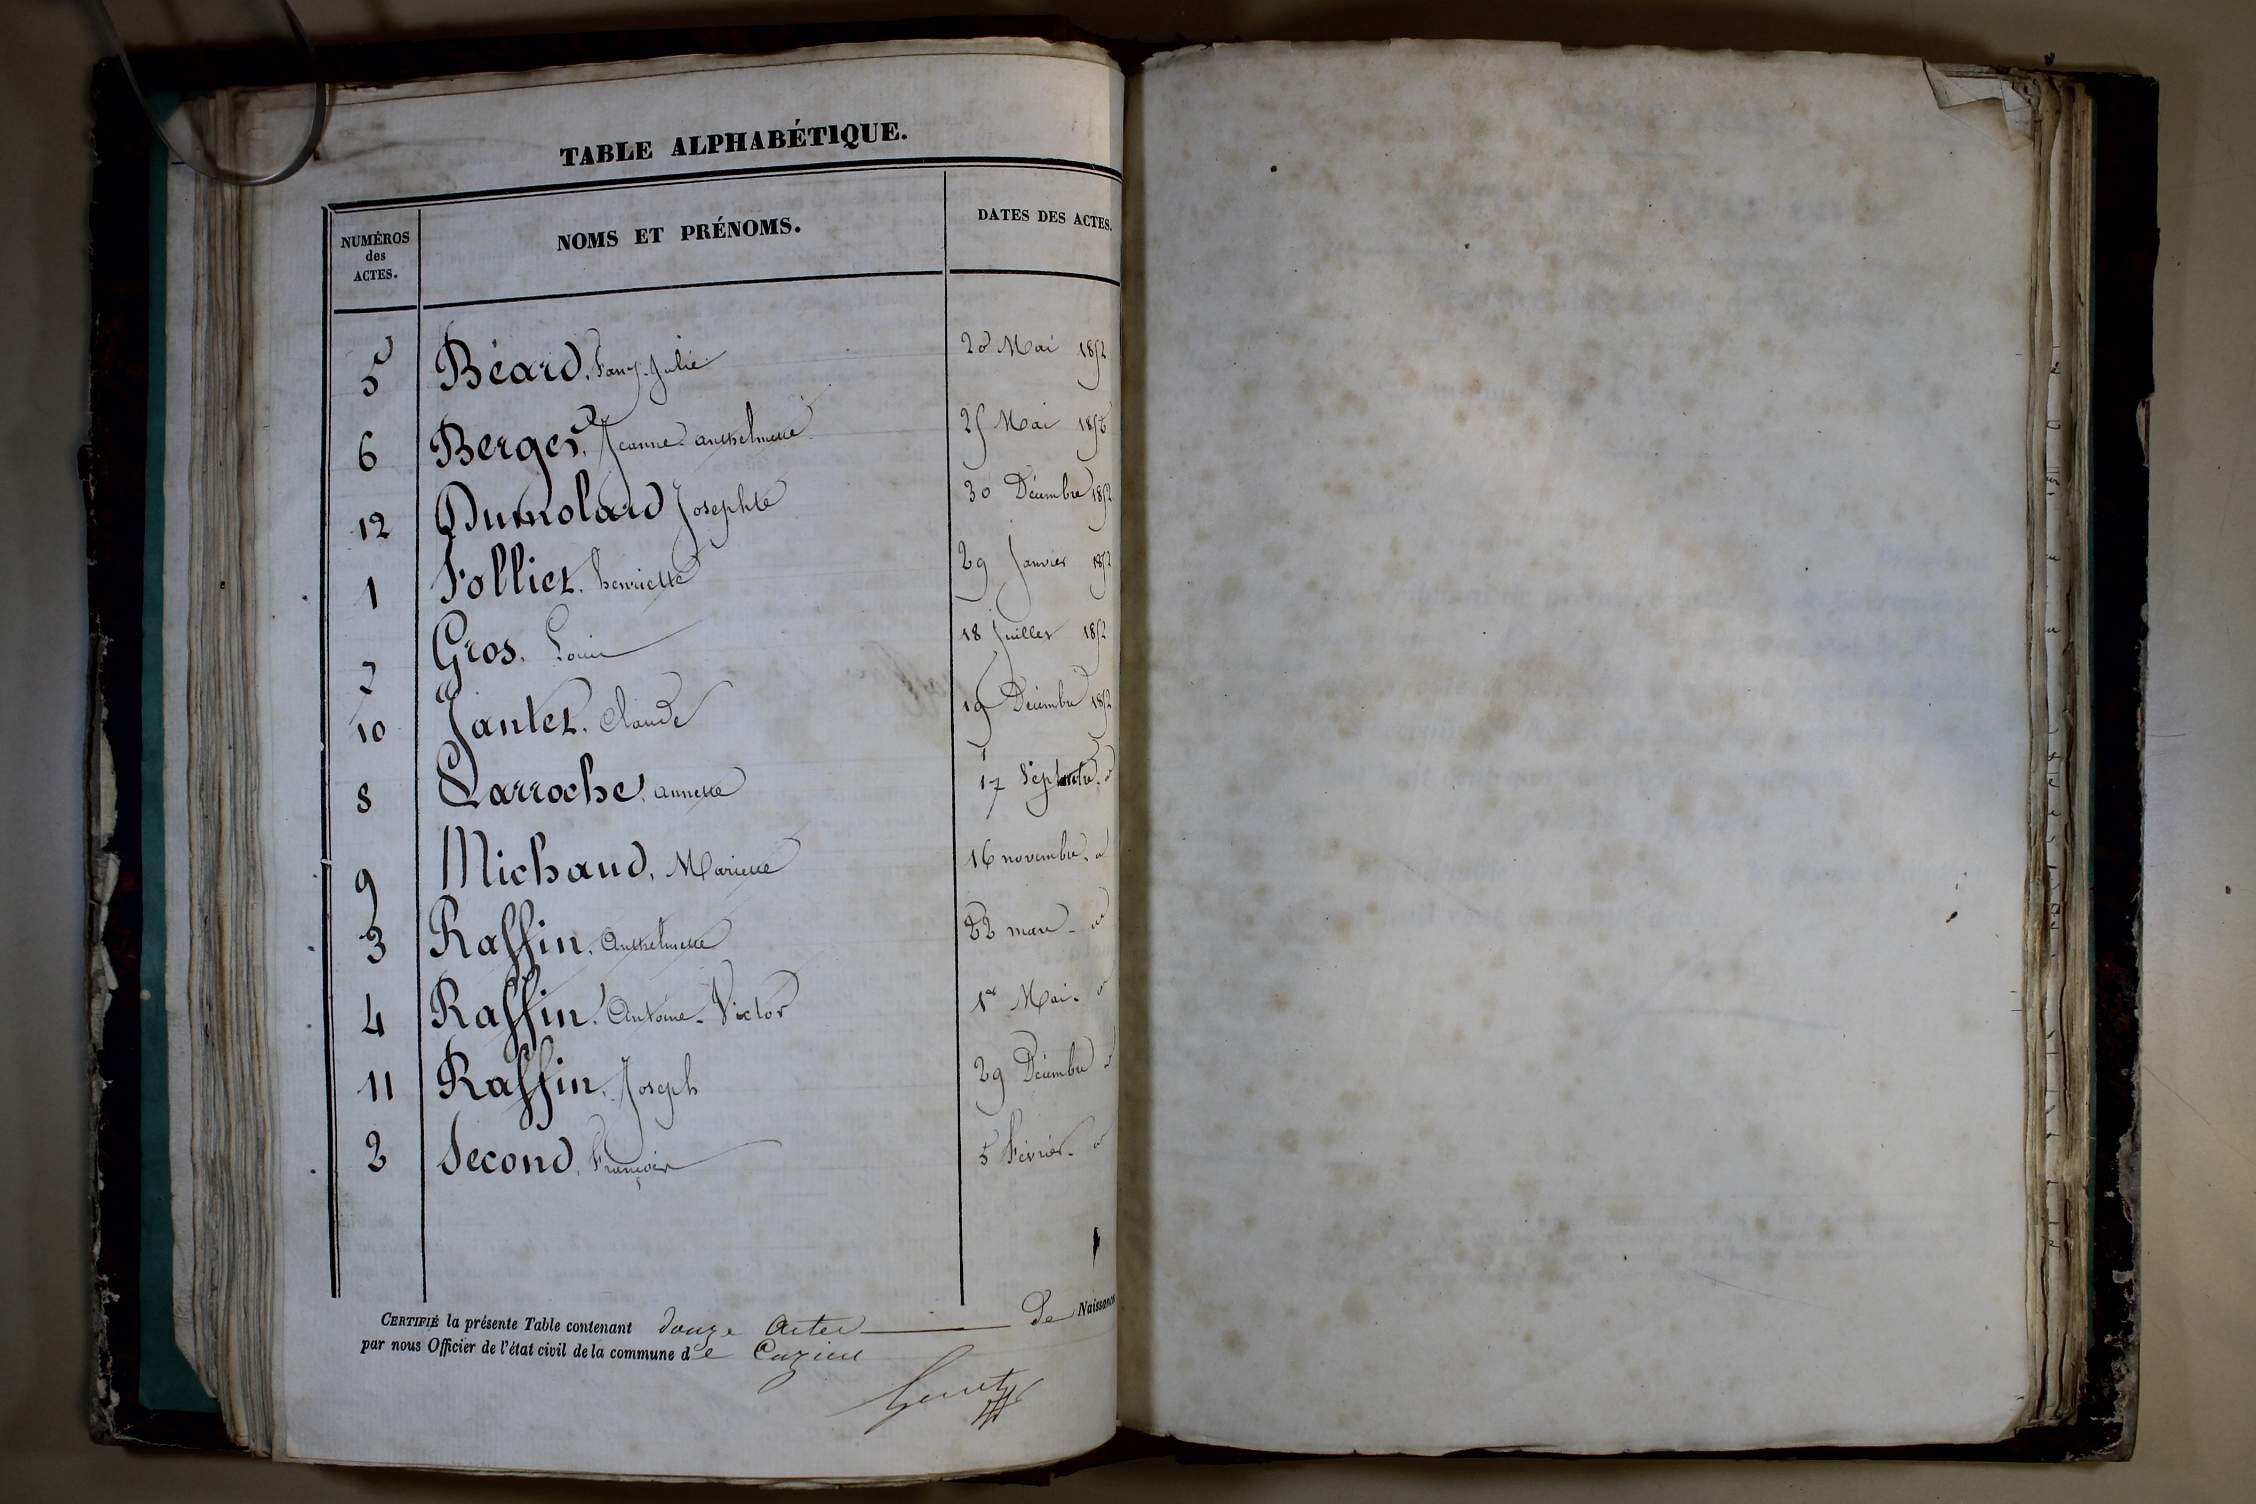 TABLE ALPHABÉTIQUE.
NUMÉROS des ACTES. NOMS ET PRÉNOMS. DATES DES ACTES.
5 Béard, Fany-Julie 20 Mai 1852
6 Berger, Jeanne anthelmette 25 Mai 1852
12 Dumolard Josephte 30 Décembre 1852
1 Folliet. henriette 29 Janvier 1852
7 Gros. Louis 18 Juillet 1852
10 Jantet. Claude 19 Décembre 1852
8 Larroche, annette 17 Septembre. d
9 Michaud, Mariette 16 novembre. d
3 Raffin. Anthelmette 22 mars - d
4 Raffin. Antoine-Victor 1er Mai. d
11 Raffin, Joseph 29 Décembre d
2 Second, François 5 Février. d
CERTIFIÉ la présente Table contenant douze Actes de Naissance
par nous Officier de l'état civil de la commune de Cuzieu